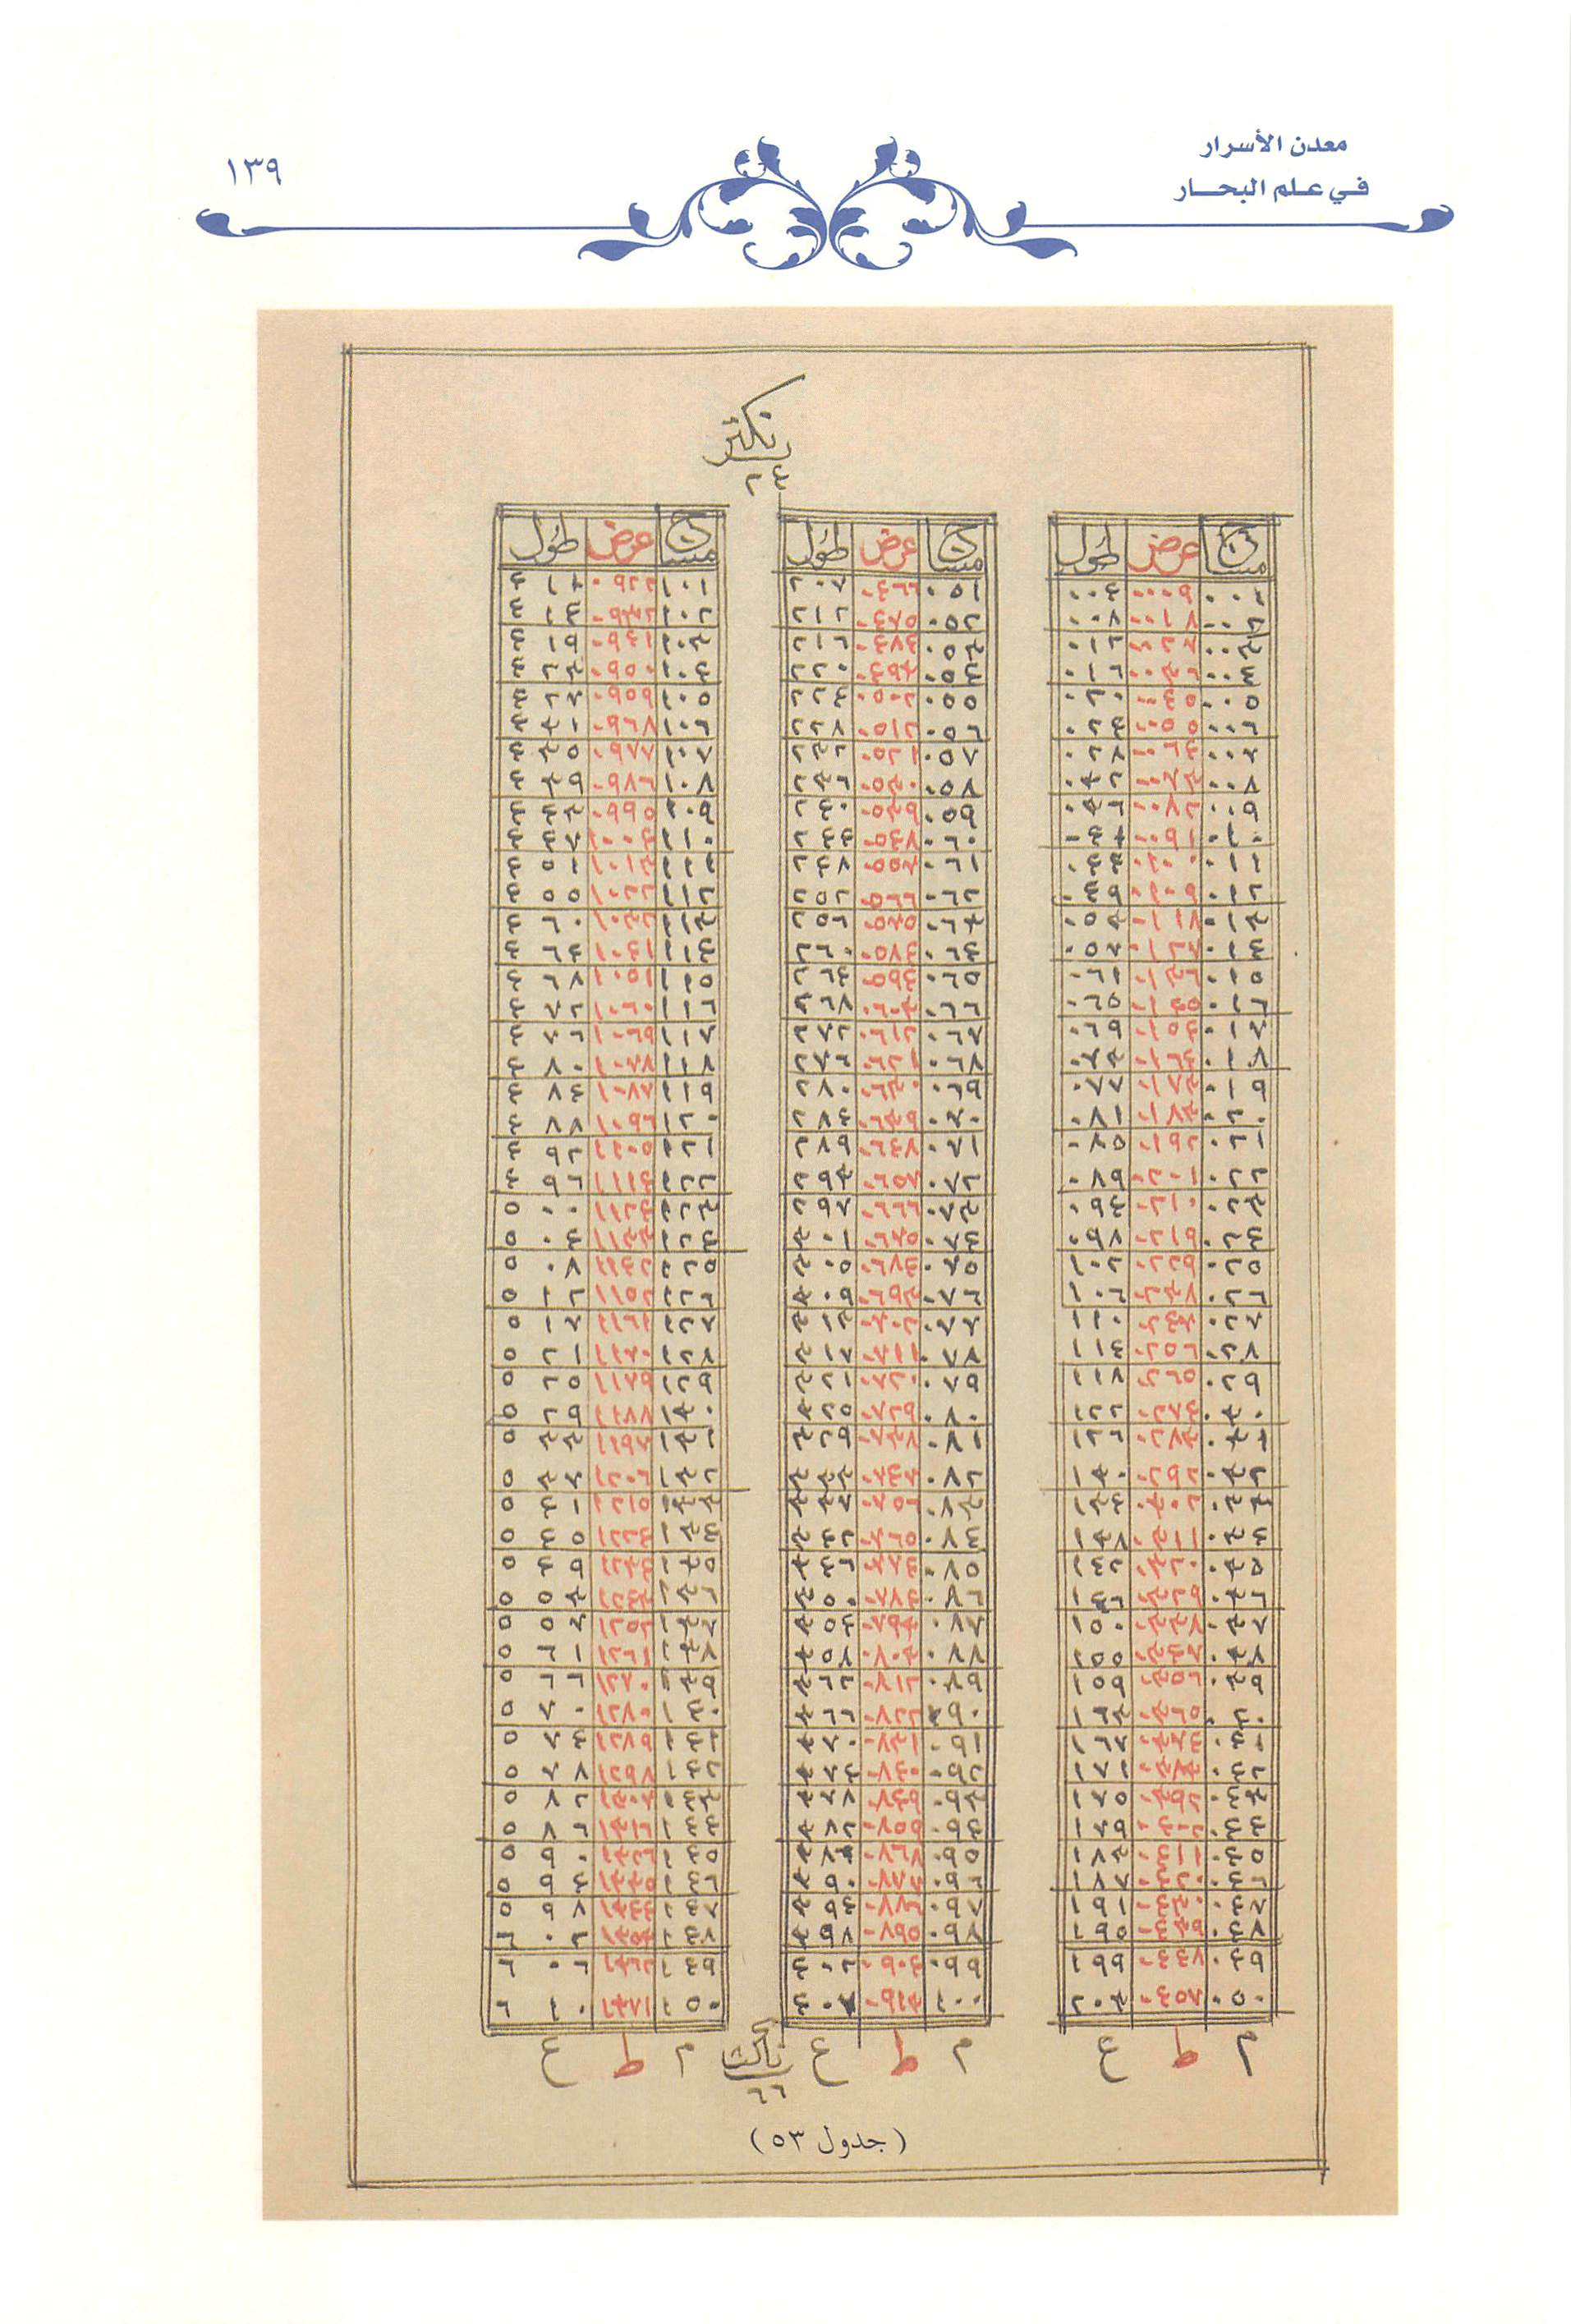 معدن الأسرار
في علم البحار
١٣٩
نكتر
٢٤
مساج عرض طول
٠٠١ ٠٠٠٩ ٠٠٤
٠٠٢ ٠٠١٨ ٠٠٨
٠٠٣ ٠٠٢٧ ٠١٢
٠٠٤ ٠٠٣٦ ٠١٦
٠٠٥ ٠٠٤٥ ٠٢٠
٠٠٦ ٠٠٥٥ ٠٢٤
٠٠٧ ٠٠٦٤ ٠٢٨
٠٠٨ ٠٠٧٣ ٠٣٢
٠٠٩ ٠٠٨٢ ٠٣٦
٠١٠ ٠٠٩١ ٠٤١
٠١١ ٠١٠٠ ٠٤٤
٠١٢ ٠١٠٩ ٠٤٩
٠١٣ ٠١١٨ ٠٥٣
٠١٤ ٠١٢٧ ٠٥٧
٠١٥ ٠١٣٦ ٠٦١
٠١٦ ٠١٤٥ ٠٦٥
٠١٧ ٠١٥٤ ٠٦٩
٠١٨ ٠١٦٤ ٠٧٣
٠١٩ ٠١٧٣ ٠٧٧
٠٢٠ ٠١٨٣ ٠٨١
٠٢١ ٠١٩٢ ٠٨٥
٠٢٢ ٠٢٠١ ٠٨٩
٠٢٣ ٠٢١٠ ٠٩٤
٠٢٤ ٠٢١٩ ٠٩٨
٠٢٥ ٠٢٢٩ ١٠٢
٠٢٦ ٠٢٣٧ ١٠٦
٠٢٧ ٠٢٤٧ ١١٠
٠٢٨ ٠٢٥٦ ١١٤
٠٢٩ ٠٢٦٥ ١١٨
٠٣٠ ٠٢٧٤ ١٢٢
٠٣١ ٠٢٨٣ ١٢٦
٠٣٢ ٠٢٩٢ ١٣٠
٠٣٣ ٠٣٠٢ ١٣٤
٠٣٤ ٠٣١١ ١٣٨
٠٣٥ ٠٣٢٠ ١٤٢
٠٣٦ ٠٣٢٩ ١٤٦
٠٣٧ ٠٣٣٨ ١٥٠
٠٣٨ ٠٣٤٧ ١٥٥
٠٣٩ ٠٣٥٦ ١٥٩
٠٤٠ ٠٣٦٥ ١٦٣
٠٤١ ٠٣٧٤ ١٦٧
٠٤٢ ٠٣٨٣ ١٧١
٠٤٣ ٠٣٩٢ ١٧٥
٠٤٤ ٠٤٠٢ ١٧٩
٠٤٥ ٠٤١١ ١٨٣
٠٤٦ ٠٤٢٠ ١٨٧
٠٤٧ ٠٤٣٠ ١٩١
٠٤٨ ٠٤٣٩ ١٩٥
٠٤٩ ٠٤٤٧ ١٩٩
٠٥٠ ٠٤٥٨ ٢٠٣
م ط ع
مساج عرض طول
٠٥١ ٠٤٦٦ ٢٠٧
٠٥٢ ٠٤٧٥ ٢١٢
٠٥٣ ٠٤٨٤ ٢١٦
٠٥٤ ٠٤٩٣ ٢٢٠
٠٥٥ ٠٥٠٢ ٢٢٤
٠٥٦ ٠٥١٢ ٢٢٨
٠٥٧ ٠٥٢١ ٢٣٢
٠٥٨ ٠٥٣٠ ٢٣٦
٠٥٩ ٠٥٣٩ ٢٤٠
٠٦٠ ٠٥٤٨ ٢٤٤
٠٦١ ٠٥٥٧ ٢٤٨
٠٦٢ ٠٥٦٦ ٢٥٢
٠٦٣ ٠٥٧٥ ٢٥٦
٠٦٤ ٠٥٨٤ ٢٦٠
٠٦٥ ٠٥٩٤ ٢٦٤
٠٦٦ ٠٦٠٣ ٢٦٨
٠٦٧ ٠٦١٢ ٢٧٢
٠٦٨ ٠٦٢١ ٢٧٦
٠٦٩ ٠٦٣٠ ٢٨٠
٠٧٠ ٠٦٣٩ ٢٨٤
٠٧١ ٠٦٤٨ ٢٨٩
٠٧٢ ٠٦٥٧ ٢٩٣
٠٧٣ ٠٦٦٦ ٢٩٧
٠٧٤ ٠٦٧٥ ٣٠١
٠٧٥ ٠٦٨٤ ٣٠٥
٠٧٦ ٠٦٩٣ ٣٠٩
٠٧٧ ٠٧٠٢ ٣١٣
٠٧٨ ٠٧١١ ٣١٧
٠٧٩ ٠٧٢٠ ٣٢١
٠٨٠ ٠٧٢٩ ٣٢٥
٠٨١ ٠٧٣٨ ٣٢٩
٠٨٢ ٠٧٤٧ ٣٣٣
٠٨٣ ٠٧٥٦ ٣٣٧
٠٨٤ ٠٧٦٥ ٣٤٢
٠٨٥ ٠٧٧٤ ٣٤٦
٠٨٦ ٠٧٨٤ ٣٥٠
٠٨٧ ٠٧٩٣ ٣٥٤
٠٨٨ ٠٨٠٣ ٣٥٨
٠٨٩ ٠٨١٢ ٣٦٢
٠٩٠ ٠٨٢٢ ٣٦٦
٠٩١ ٠٨٣١ ٣٧٠
٠٩٢ ٠٨٤٠ ٣٧٤
٠٩٣ ٠٨٤٩ ٣٧٨
٠٩٤ ٠٨٥٩ ٣٨٢
٠٩٥ ٠٨٦٨ ٣٨٦
٠٩٦ ٠٨٧٧ ٣٩٠
٠٩٧ ٠٨٨٦ ٣٩٤
٠٩٨ ٠٨٩٥ ٣٩٨
٠٩٩ ٠٩٠٤ ٤٠٢
١٠٠ ٠٩١٣ ٤٠٧
م ط ع
مساج عرض طول
١٠١ ٠٩٢٢
١٠٢ ٠٩٣٢
١٠٣ ٠٩٤١ ٤١٩
١٠٤ ٠٩٥٠ ٤٢٣
١٠٥ ٠٩٥٩ ٤٢٧
١٠٦ ٠٩٦٨ ٤٣١
١٠٧ ٠٩٧٧ ٤٣٥
١٠٨ ٠٩٨٦ ٤٣٩
١٠٩ ٠٩٩٥ ٤٤٣
١١٠ ١٠٠٤ ٤٤٧
١١١ ١٠١٣ ٤٥١
١١٢ ١٠٢٢ ٤٥٥
١١٣ ١٠٣٢ ٤٦٠
١١٤ ١٠٤١ ٤٦٤
١١٥ ١٠٥١ ٤٦٨
١١٦ ١٠٦٠ ٤٧٢
١١٧ ١٠٦٩ ٤٧٦
١١٨ ١٠٧٨ ٤٨٠
١١٩ ١٠٨٧ ٤٨٤
١٢٠ ١٠٩٦ ٤٨٨
١٢١ ١١٠٥ ٤٩٢
١٢٢ ١١١٤ ٤٩٦
١٢٣ ١١٢٤ ٥٠٠
١٢٤ ١١٣٣ ٥٠٤
١٢٥ ١١٤٢ ٥٠٨
١٢٦ ١١٥٢ ٥١٢
١٢٧ ١١٦١ ٥١٧
١٢٨ ١١٧٠ ٥٢١
١٢٩ ١١٧٩ ٥٢٥
١٣٠ ١١٨٨ ٥٢٩
١٣١ ١١٩٧ ٥٣٣
١٣٢ ١٢٠٦ ٥٣٧
١٣٣ ١٢١٥ ٥٤١
١٣٤ ١٢٢٤ ٥٤٥
١٣٥ ١٢٣٤ ٥٤٩
١٣٦ ١٢٤٣ ٥٥٣
١٣٧ ١٢٥٢ ٥٥٧
١٣٨ ١٢٦١ ٥٦١
١٣٩ ١٢٧٠ ٥٦٦
١٤٠ ١٢٨٠ ٥٧٠
١٤١ ١٢٨٩ ٥٧٤
١٤٢ ١٢٩٨ ٥٧٨
١٤٣ ١٣٠٧ ٥٨٢
١٤٤ ١٣١٦ ٥٨٦
١٤٥ ١٣٢٦ ٥٩٠
١٤٦ ١٣٣٥ ٥٩٤
١٤٧ ١٣٤٤ ٥٩٨
١٤٨ ١٣٥٣ ٦٠٢
١٤٩ ١٣٦٢ ٦٠٦
١٥٠ ١٣٧١ ٦١٠
م ط ع
٦٦
(جدول ٥٣)